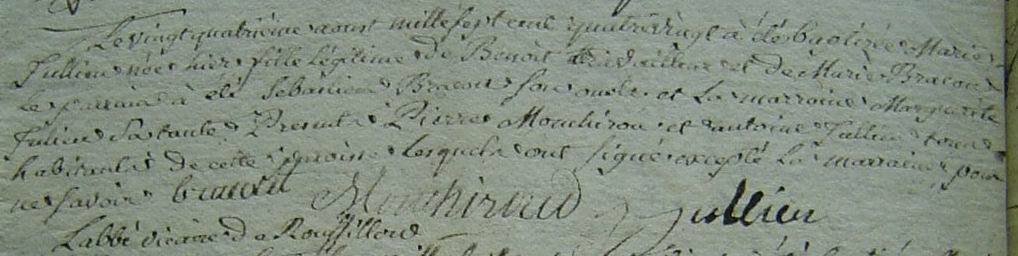 Le vingt quatrieme aoust mille sept cens quatrevingt à été baptizée Marie
Jullien née hier fille légitime de Benoit et de Marie Bracoud
le parrain à été Sébastien Bracoud son oncle et la marraine Marguerite
Julien sa tante Présents Pierre Monchiroud et antoine Jullien tous
habitants de cette paroisse lesquels ont signé excepté la marraine pour
ne savoir bracoud Monchiroud Jullien
Labbé vicaire de Roussillond